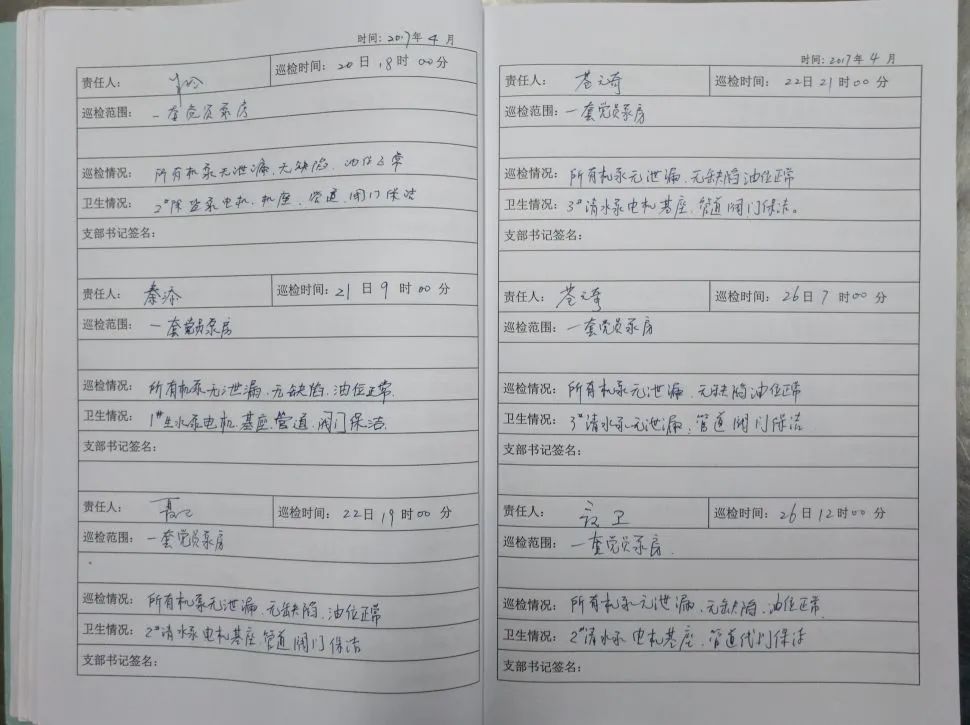 时间：2017年 4 月
责任人：
巡检时间：20日 18时 00分
巡检范围：一套党员泵房
巡检情况：所有机泵无泄漏、无缺陷、油位正常
卫生情况：2#除盐泵电机、机座、管道、阀门保洁
支部书记签名：
责任人：秦添
巡检时间：21日 9 时00 分
巡检范围：一套党员泵房
巡检情况：所有机泵无泄漏、无缺陷、油位正常.
卫生情况：1#生水泵电机、基座、管道、阀门保洁.
支部书记签名：
责任人：
巡检时间：22日 19时00 分
巡检范围：一套党员泵房
巡检情况：所有机泵无泄漏、无缺陷、油位正常
卫生情况：2#清水泵电机基座、管道阀门保洁
支部书记签名：
时间：2017年 4 月
责任人：苍元奇
巡检时间：22日21时00分
巡检范围：一套党员泵房
巡检情况：所有机泵无泄漏、无缺陷油位正常
卫生情况：3#清水泵电机基座、管道阀门保洁。
支部书记签名：
责任人：苍元奇
巡检时间：26日 7 时00 分
巡检范围：一套党员泵房
巡检情况：所有机泵无泄漏、无缺陷油位正常
卫生情况：3#清水泵无泄漏、管道阀门保洁
支部书记签名：
责任人：卫
巡检时间：26日12时00 分
巡检范围：一套党员泵房.
巡检情况：所有机泵无泄漏、无缺陷、油位正常
卫生情况：2#清水泵电机基座、管道保洁
支部书记签名：